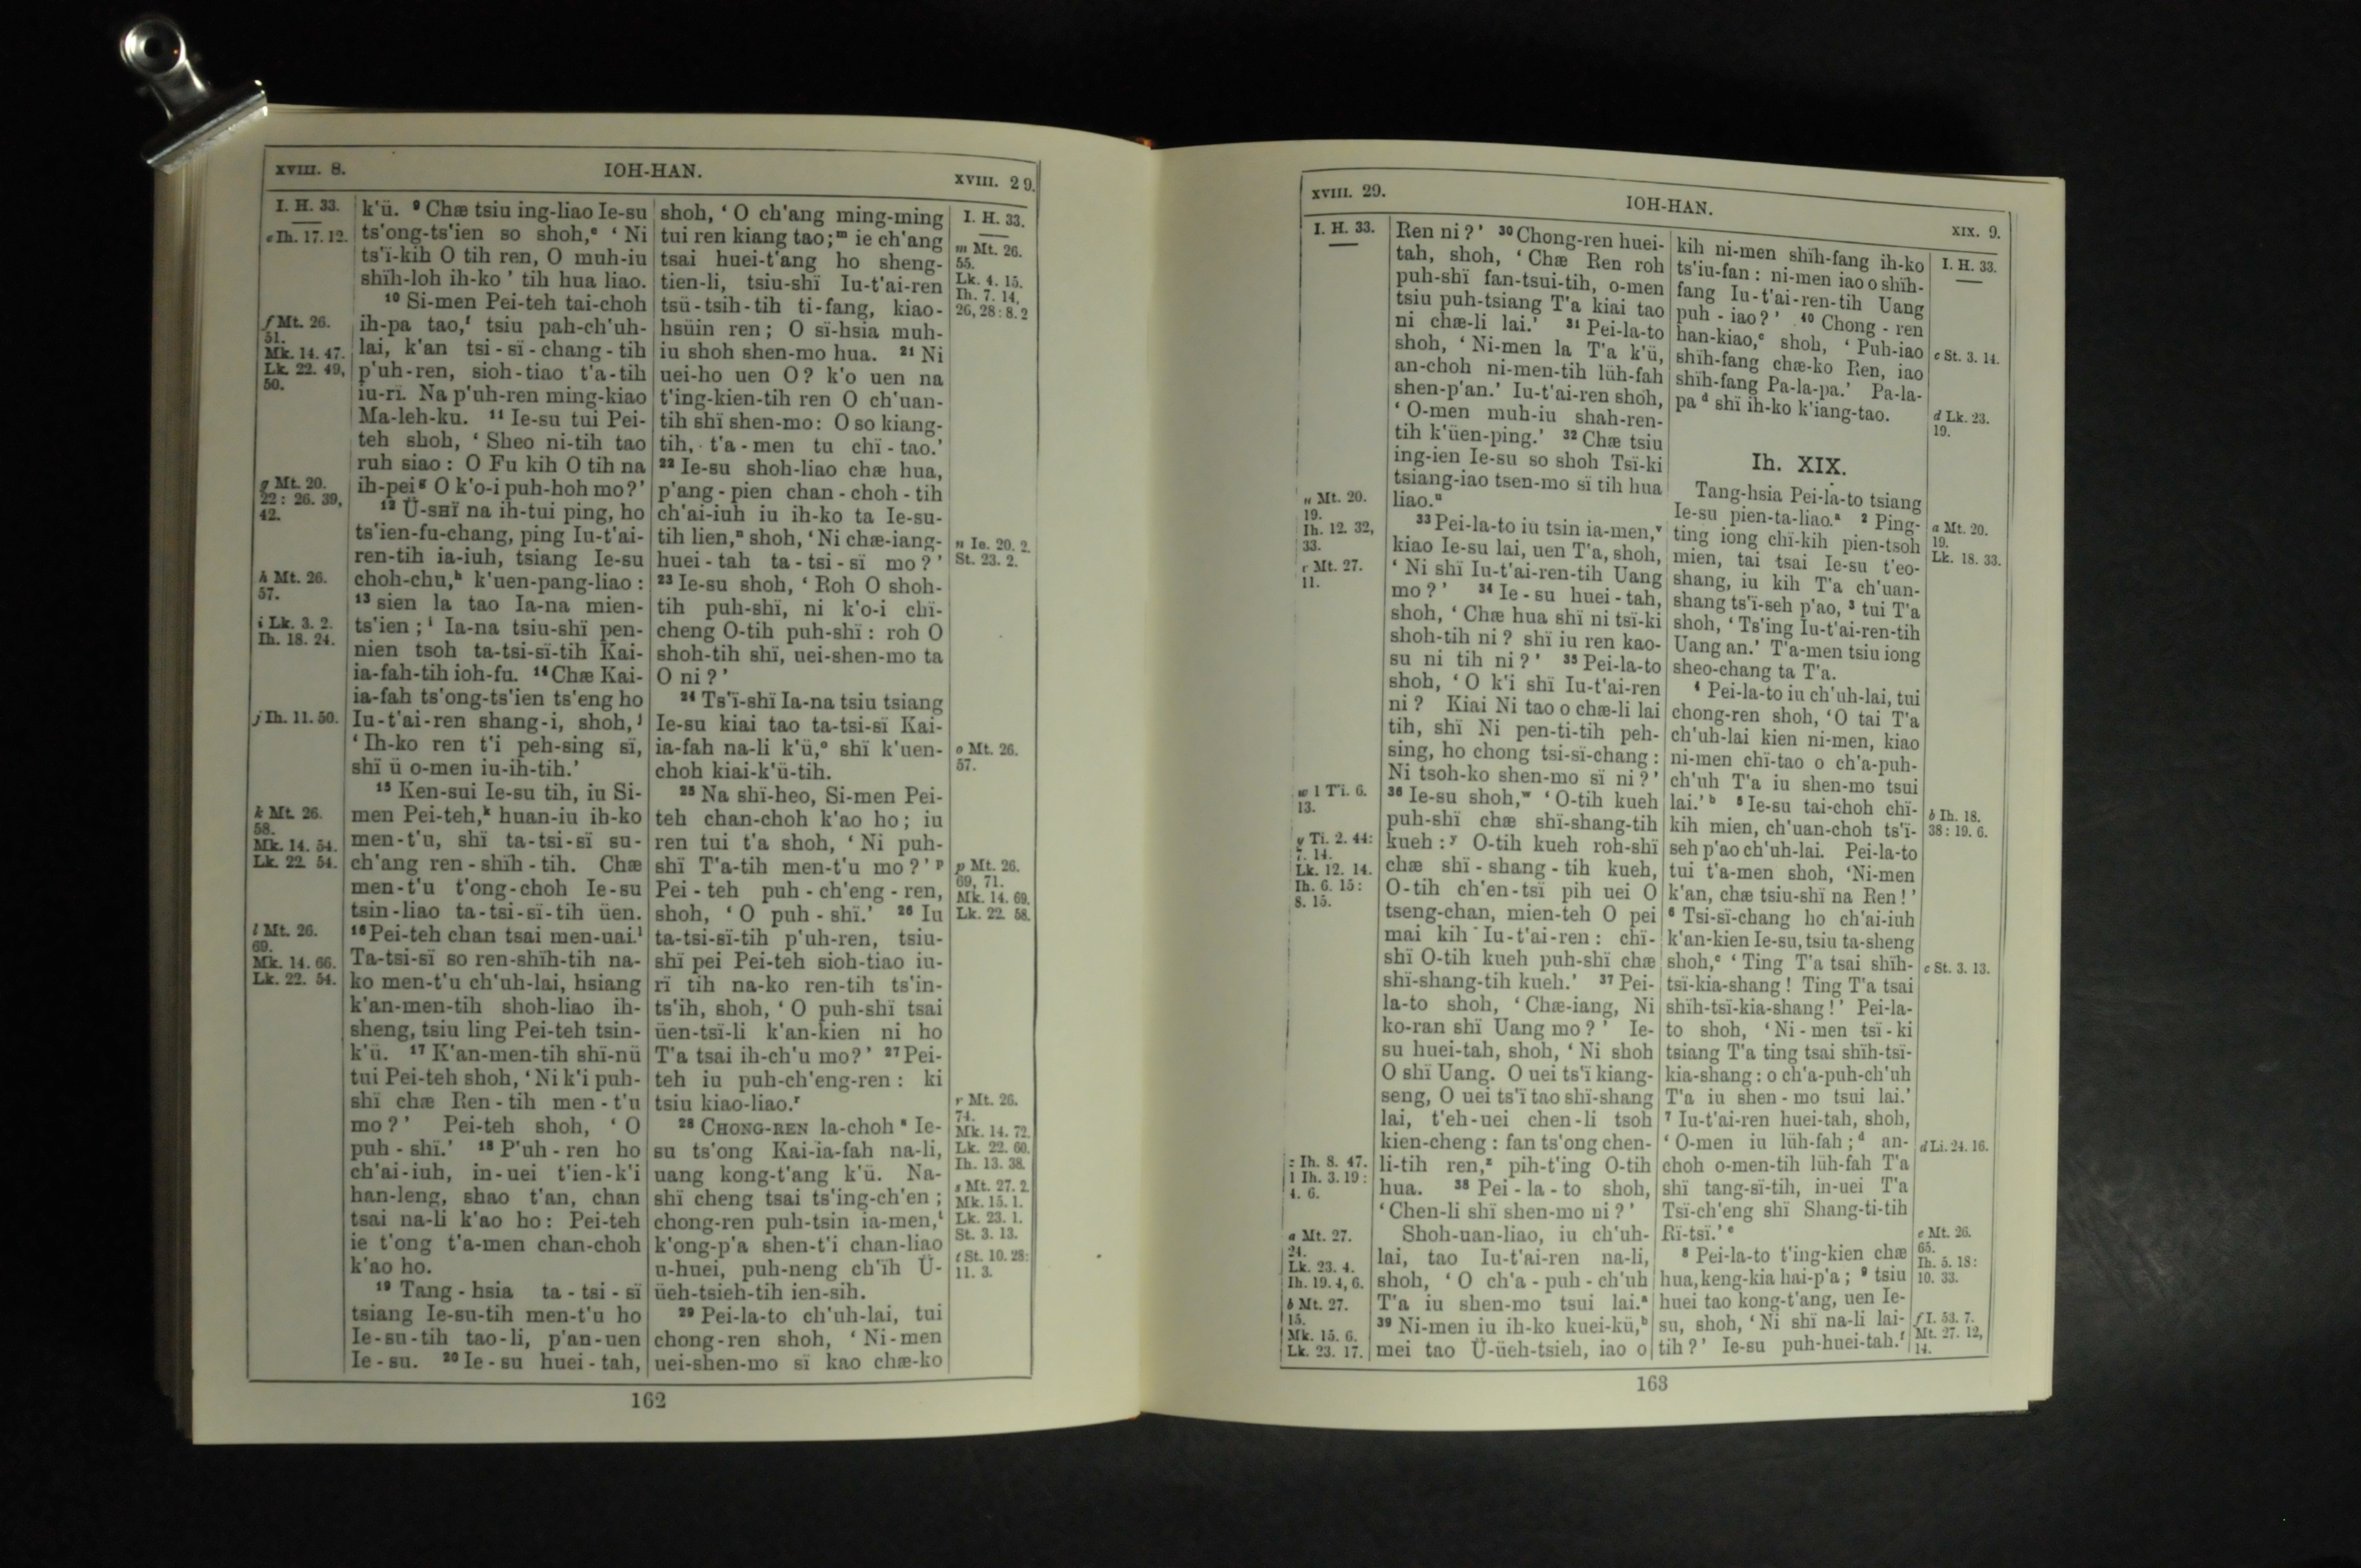 XVIII. 8.
IOH-HAN.
XVIII. 29.
I. H. 33.
e Ih. 17. 12.
f Mt. 26.
51.
Mk. 14. 47.
Lk. 22. 49,
50.
g Mt. 20.
22 : 26. 39,
42.
h Mt. 26.
57.
i Lk. 3. 2.
Ih. 18. 24.
j Ih. 11. 50.
k Mt. 26.
58.
Mk. 14. 54.
Lk. 22. 54.
l Mt. 26.
69.
Mk. 14. 66.
Lk. 22. 54.
k'ü. ⁹ Chæ tsiu ing-liao Ie-su
ts'ong-ts'ien so shoh,ᵉ ‘ Ni
ts'ï-kih O tih ren, O muh-iu
shïh-loh ih-ko ’ tih hua liao.
¹⁰ Si-men Pei-teh tai-choh
ih-pa tao,ᶠ tsiu pah-ch'uh-
lai, k'an tsi-sï-chang-tih
p'uh-ren, sioh-tiao t'a-tih
iu-rï. Na p'uh-ren ming-kiao
Ma-leh-ku. ¹¹ Ie-su tui Pei-
teh shoh, ‘ Sheo ni-tih tao
ruh siao : O Fu kih O tih na
ih-peiᵍ O k'o-i puh-hoh mo ? ’
¹² Ü-SHÏ na ih-tui ping, ho
ts'ien-fu-chang, ping Iu-t'ai-
ren-tih ia-iuh, tsiang Ie-su
choh-chu,ʰ k'uen-pang-liao :
¹³ sien la tao Ia-na mien-
ts'ien ;ⁱ Ia-na tsiu-shï pen-
nien tsoh ta-tsi-sï-tih Kai-
ia-fah-tih ioh-fu. ¹⁴ Chæ Kai-
ia-fah ts'ong-ts'ien ts'eng ho
Iu-t'ai-ren shang-i, shoh,ʲ
‘ Ih-ko ren t'i peh-sing sï,
shï ü o-men iu-ih-tih.’
¹⁵ Ken-sui Ie-su tih, iu Si-
men Pei-teh,ᵏ huan-iu ih-ko
men-t'u, shï ta-tsi-sï su-
ch'ang ren-shïh-tih. Chæ
men-t'u t'ong-choh Ie-su
tsin-liao ta-tsi-sï-tih üen.
¹⁶ Pei-teh chan tsai men-uai.ˡ
Ta-tsi-sï so ren-shïh-tih na-
ko men-t'u ch'uh-lai, hsiang
k'an-men-tih shoh-liao ih-
sheng, tsiu ling Pei-teh tsin-
k'ü. ¹⁷ K'an-men-tih shï-nü
tui Pei-teh shoh, ‘ Ni k'i puh-
shï chæ Ren-tih men-t'u
mo ? ’ Pei-teh shoh, ‘ O
puh-shï.’ ¹⁸ P'uh-ren ho
ch'ai-iuh, in-uei t'ien-k'i
han-leng, shao t'an, chan
tsai na-li k'ao ho : Pei-teh
ie t'ong t'a-men chan-choh
k'ao ho.
¹⁹ Tang-hsia ta-tsi-sï
tsiang Ie-su-tih men-t'u ho
Ie-su-tih tao-li, p'an-uen
Ie-su. ²⁰ Ie-su huei-tah,
shoh, ‘ O ch'ang ming-ming
tui ren kiang tao ;ᵐ ie ch'ang
tsai huei-t'ang ho sheng-
tien-li, tsiu-shï Iu-t'ai-ren
tsü-tsih-tih ti-fang, kiao-
hsüin ren ; O sï-hsia muh-
iu shoh shen-mo hua. ²¹ Ni
uei-ho uen O ? k'o uen na
t'ing-kien-tih ren O ch'uan-
tih shï shen-mo : O so kiang-
tih, t'a-men tu chï-tao.’
²² Ie-su shoh-liao chæ hua,
p'ang-pien chan-choh-tih
ch'ai-iuh iu ih-ko ta Ie-su-
tih lien,ⁿ shoh, ‘ Ni chæ-iang-
huei-tah ta-tsi-sï mo ? ’
²³ Ie-su shoh, ‘ Roh O shoh-
tih puh-shï, ni k'o-i chï-
cheng O-tih puh-shï : roh O
shoh-tih shï, uei-shen-mo ta
O ni ? ’
²⁴ Ts'ï-shï Ia-na tsiu tsiang
Ie-su kiai tao ta-tsi-sï Kai-
ia-fah na-li k'ü,ᵒ shï k'uen-
choh kiai-k'ü-tih.
²⁵ Na shï-heo, Si-men Pei-
teh chan-choh k'ao ho ; iu
ren tui t'a shoh, ‘ Ni puh-
shï T'a-tih men-t'u mo ? ’ ᵖ
Pei-teh puh-ch'eng-ren,
shoh, ‘ O puh-shï.’ ²⁶ Iu
ta-tsi-sï-tih p'uh-ren, tsiu-
shï pei Pei-teh sioh-tiao iu-
rï tih na-ko ren-tih ts'in-
ts'ih, shoh, ‘ O puh-shï tsai
üen-tsï-li k'an-kien ni ho
T'a tsai ih-ch'u mo ? ’ ²⁷ Pei-
teh iu puh-ch'eng-ren : ki
tsiu kiao-liao.ʳ
²⁸ CHONG-REN la-choh ˢ Ie-
su ts'ong Kai-ia-fah na-li,
uang kong-t'ang k'ü. Na-
shï cheng tsai ts'ing-ch'en ;
chong-ren puh-tsin ia-men,ᵗ
k'ong-p'a shen-t'i chan-liao
u-huei, puh-neng ch'ïh Ü-
üeh-tsieh-tih ien-sih.
²⁹ Pei-la-to ch'uh-lai, tui
chong-ren shoh, ‘ Ni-men
uei-shen-mo sï kao chæ-ko
I. H. 33.
m Mt. 26.
55.
Lk. 4. 15.
Ih. 7. 14,
26, 28 : 8. 2
n Ie. 20. 2.
St. 23. 2.
o Mt. 26.
57.
p Mt. 26.
69, 71.
Mk. 14. 69.
Lk. 22. 58.
r Mt. 26.
74.
Mk. 14. 72.
Lk. 22. 60.
Ih. 13. 38.
s Mt. 27. 2.
Mk. 15. 1.
Lk. 23. 1.
St. 3. 13.
t St. 10. 28 :
11. 3.
162
XVIII. 29.
IOH-HAN.
XIX. 9.
I. H. 33.
u Mt. 20.
19.
Ih. 12. 32,
33.
Mt. 27.
11.
w 1 T'i. 6.
13.
y Ti. 2. 44 :
7. 14.
Lk. 12. 14.
Ih. 6. 15 :
8. 15.
z Ih. 8. 47.
1 Ih. 3. 19 :
4. 6.
a Mt. 27.
24.
Lk. 23. 4.
Ih. 19. 4, 6.
b Mt. 27.
15.
Mk. 15. 6.
Lk. 23. 17.
Ren ni ? ’ ³⁰ Chong-ren huei-
tah, shoh, ‘ Chæ Ren roh
puh-shï fan-tsui-tih, o-men
tsiu puh-tsiang T'a kiai tao
ni chæ-li lai.’ ³¹ Pei-la-to
shoh, ‘ Ni-men la T'a k'ü,
an-choh ni-men-tih lüh-fah
shen-p'an.’ Iu-t'ai-ren shoh,
‘ O-men muh-iu shah-ren-
tih k'üen-ping.’ ³² Chæ tsiu
ing-ien Ie-su so shoh Tsï-ki
tsiang-iao tsen-mo sï tih hua
liao.ᵘ
³³ Pei-la-to iu tsin ia-men,ᵛ
kiao Ie-su lai, uen T'a, shoh,
‘ Ni shï Iu-t'ai-ren-tih Uang
mo ? ’ ³⁴ Ie-su huei-tah,
shoh, ‘ Chæ hua shï ni tsï-ki
shoh-tih ni ? shï iu ren kao-
su ni tih ni ? ’ ³⁵ Pei-la-to
shoh, ‘ O k'i shï Iu-t'ai-ren
ni ? Kiai Ni tao o chæ-li lai
tih, shï Ni pen-ti-tih peh-
sing, ho chong tsi-sï-chang :
Ni tsoh-ko shen-mo sï ni ? ’
³⁶ Ie-su shoh,ʷ ‘ O-tih kueh
puh-shï chæ shï-shang-tih
kueh :ʸ O-tih kueh roh-shï
chæ shï-shang-tih kueh,
O-tih ch'en-tsï pih uei O
tseng-chan, mien-teh O pei
mai kih Iu-t'ai-ren : chï-
shï O-tih kueh puh-shï chæ
shï-shang-tih kueh.’ ³⁷ Pei-
la-to shoh, ‘ Chæ-iang, Ni
ko-ran shï Uang mo ? ’ Ie-
su huei-tah, shoh, ‘ Ni shoh
O shï Uang. O uei ts'ï kiang-
seng, O uei ts'ï tao shï-shang
lai, t'eh-uei chen-li tsoh
kien-cheng : fan ts'ong chen-
li-tih ren,ᶻ pih-t'ing O-tih
hua. ³⁸ Pei-la-to shoh,
‘ Chen-li shï shen-mo ni ? ’
Shoh-uan-liao, iu ch'uh-
lai, tao Iu-t'ai-ren na-li,
shoh, ‘ O ch'a-puh-ch'uh
T'a iu shen-mo tsui lai.ᵃ
³⁹ Ni-men iu ih-ko kuei-kü,ᵇ
mei tao Ü-üeh-tsieh, iao o
kih ni-men shïh-fang ih-ko
ts'iu-fan : ni-men iao o shïh-
fang Iu-t'ai-ren-tih Uang
puh-iao ? ’ ⁴⁰ Chong-ren
han-kiao,ᶜ shoh, ‘ Puh-iao
shïh-fang chæ-ko Ren, iao
shïh-fang Pa-la-pa.’ Pa-la-
pa ᵈ shï ih-ko k'iang-tao.
Ih. XIX.
Tang-hsia Pei-la-to tsiang
Ie-su pien-ta-liao.ᵃ ² Ping-
ting iong chï-kih pien-tsoh
mien, tai tsai Ie-su t'eo-
shang, iu kih T'a ch'uan-
shang ts'ï-seh p'ao, ³ tui T'a
shoh, ‘ Ts'ing Iu-t'ai-ren-tih
Uang an.’ T'a-men tsiu iong
sheo-chang ta T'a.
⁴ Pei-la-to iu ch'uh-lai, tui
chong-ren shoh, ‘ O tai T'a
ch'uh-lai kien ni-men, kiao
ni-men chï-tao o ch'a-puh-
ch'uh T'a iu shen-mo tsui
lai.’ ᵇ ⁵ Ie-su tai-choh chï-
kih mien, ch'uan-choh ts'ï-
seh p'ao ch'uh-lai. Pei-la-to
tui t'a-men shoh, ‘ Ni-men
k'an, chæ tsiu-shï na Ren ! ’
⁶ Tsi-sï-chang ho ch'ai-iuh
k'an-kien Ie-su, tsiu ta-sheng
shoh,ᶜ ‘ Ting T'a tsai shïh-
tsï-kia-shang ! Ting T'a tsai
shïh-tsï-kia-shang ! ’ Pei-la-
to shoh, ‘ Ni-men tsï-ki
tsiang T'a ting tsai shïh-tsï-
kia-shang : o ch'a-puh-ch'uh
T'a iu shen-mo tsui lai.’
⁷ Iu-t'ai-ren huei-tah, shoh,
‘ O-men iu lüh-fah ;ᵈ an-
choh o-men-tih lüh-fah T'a
shï tang-sï-tih, in-uei T'a
Tsï-ch'eng shï Shang-ti-tih
Rï-tsï.’ ᵉ
⁸ Pei-la-to t'ing-kien chæ
hua, keng-kia hai-p'a ; ⁹ tsiu
huei tao kong-t'ang, uen Ie-
su, shoh, ‘ Ni shï na-li lai-
tih ? ’ Ie-su puh-huei-tah.ᶠ
I. H. 33.
c St. 3. 14.
d Lk. 23.
19.
a Mt. 20.
19.
Lk. 18. 33.
b Ih. 18.
38 : 19. 6.
c St. 3. 13.
d Li. 24. 16.
e Mt. 26.
65.
Ih. 5. 18 :
10. 33.
f I. 53. 7.
Mt. 27. 12,
14.
163